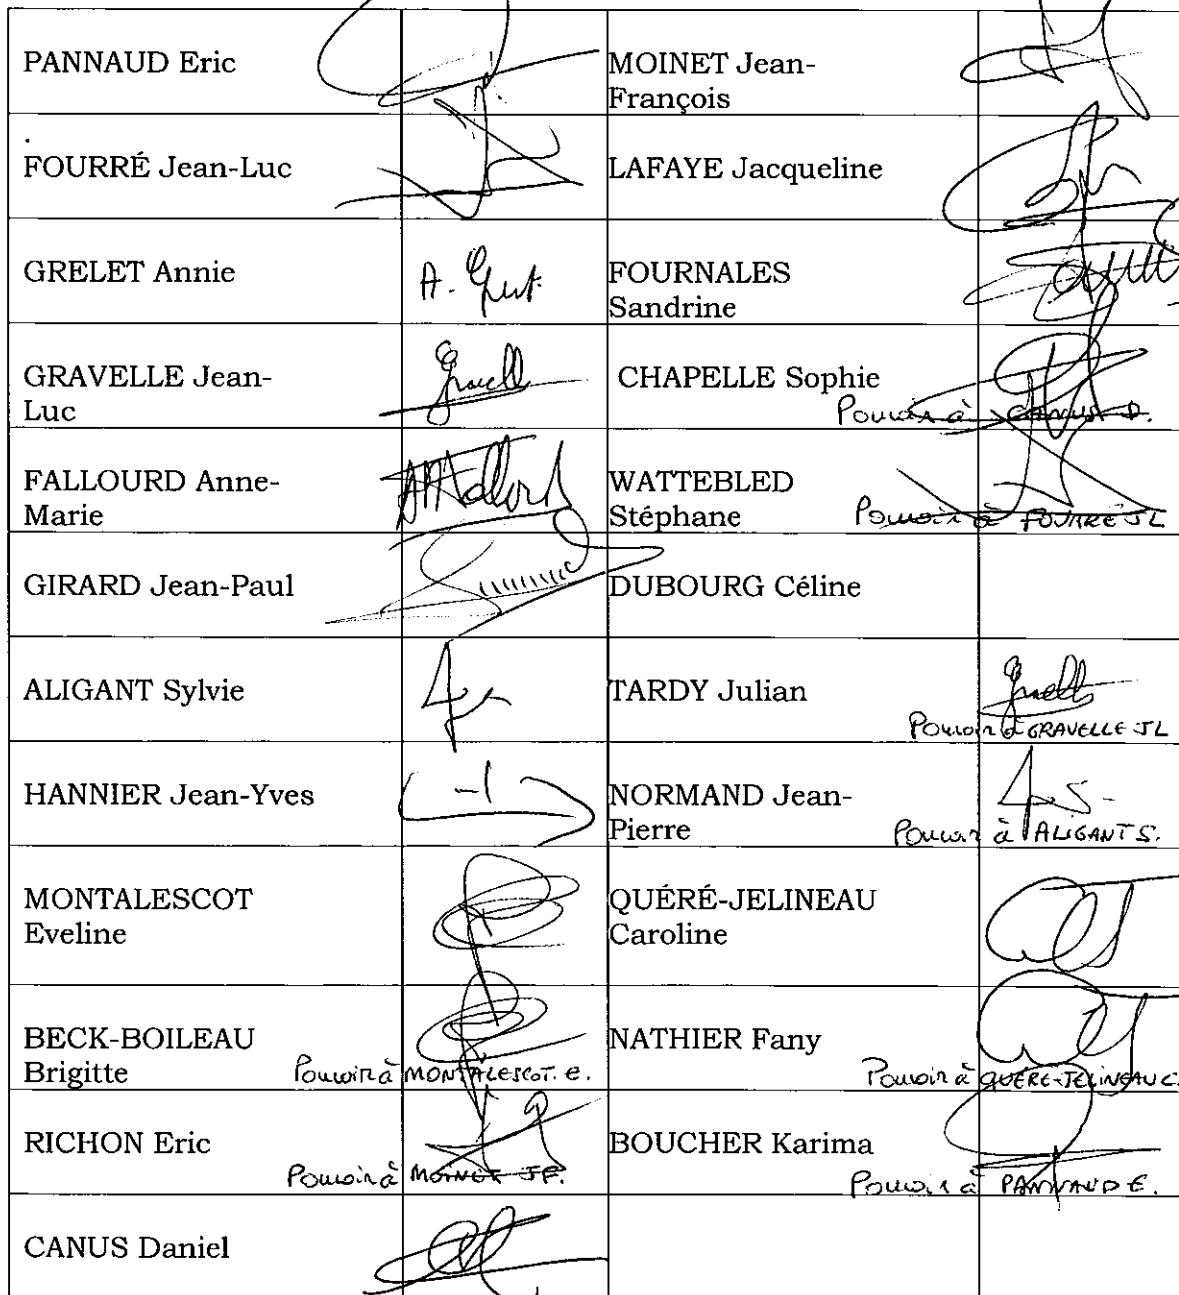 PANNAUD Eric
MOINET Jean-
François
FOURRÉ Jean-Luc
LAFAYE Jacqueline
GRELET Annie
FOURNALES
Sandrine
GRAVELLE Jean-
Luc
CHAPELLE Sophie
Pouvoir à CANUS D.
FALLOURD Anne-
Marie
WATTEBLED
Stéphane
Pouvoir à FOURRÉ JL
GIRARD Jean-Paul
DUBOURG Céline
ALIGANT Sylvie
TARDY Julian
Pouvoir à GRAVELLE JL
HANNIER Jean-Yves
NORMAND Jean-
Pierre
Pouvoir à ALIGANT S.
MONTALESCOT
Eveline
QUÉRÉ-JELINEAU
Caroline
BECK-BOILEAU
Brigitte
Pouvoir à MONTALESCOT. E.
NATHIER Fany
Pouvoir à QUÉRÉ-JELINEAU C.
RICHON Eric
Pouvoir à MOINET JF.
BOUCHER Karima
Pouvoir à PANNAUD E.
CANUS Daniel